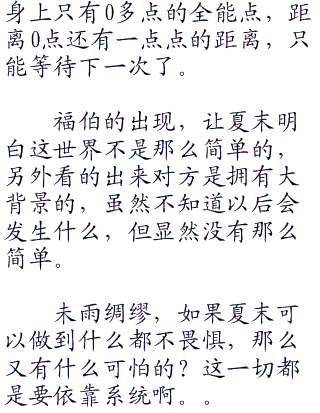 身上只有0多点的全能点，距
离0点还有一点点的距离，只
能等待下一次了。
福伯的出现，让夏末明
白这世界不是那么简单的，
另外看的出来对方是拥有大
背景的，虽然不知道以后会
发生什么，但显然没有那么
简单。
未雨绸缪，如果夏末可
以做到什么都不畏惧，那么
又有什么可怕的？这一切都
是要依靠系统啊。。